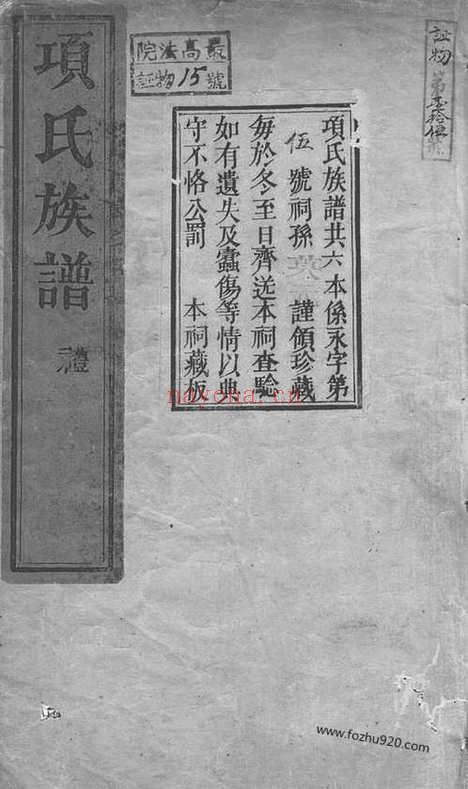 項氏族譜 禮
最高法院
証物15號
証物第壹拾伍號
項氏族譜共六本係永字第
伍號祠孫 謹領珍藏
每於冬至日齊送本祠查驗
如有遺失及蠧傷等情以典
守不恪公罰 本祠藏板
nayona.cn
www.fozhu920.com